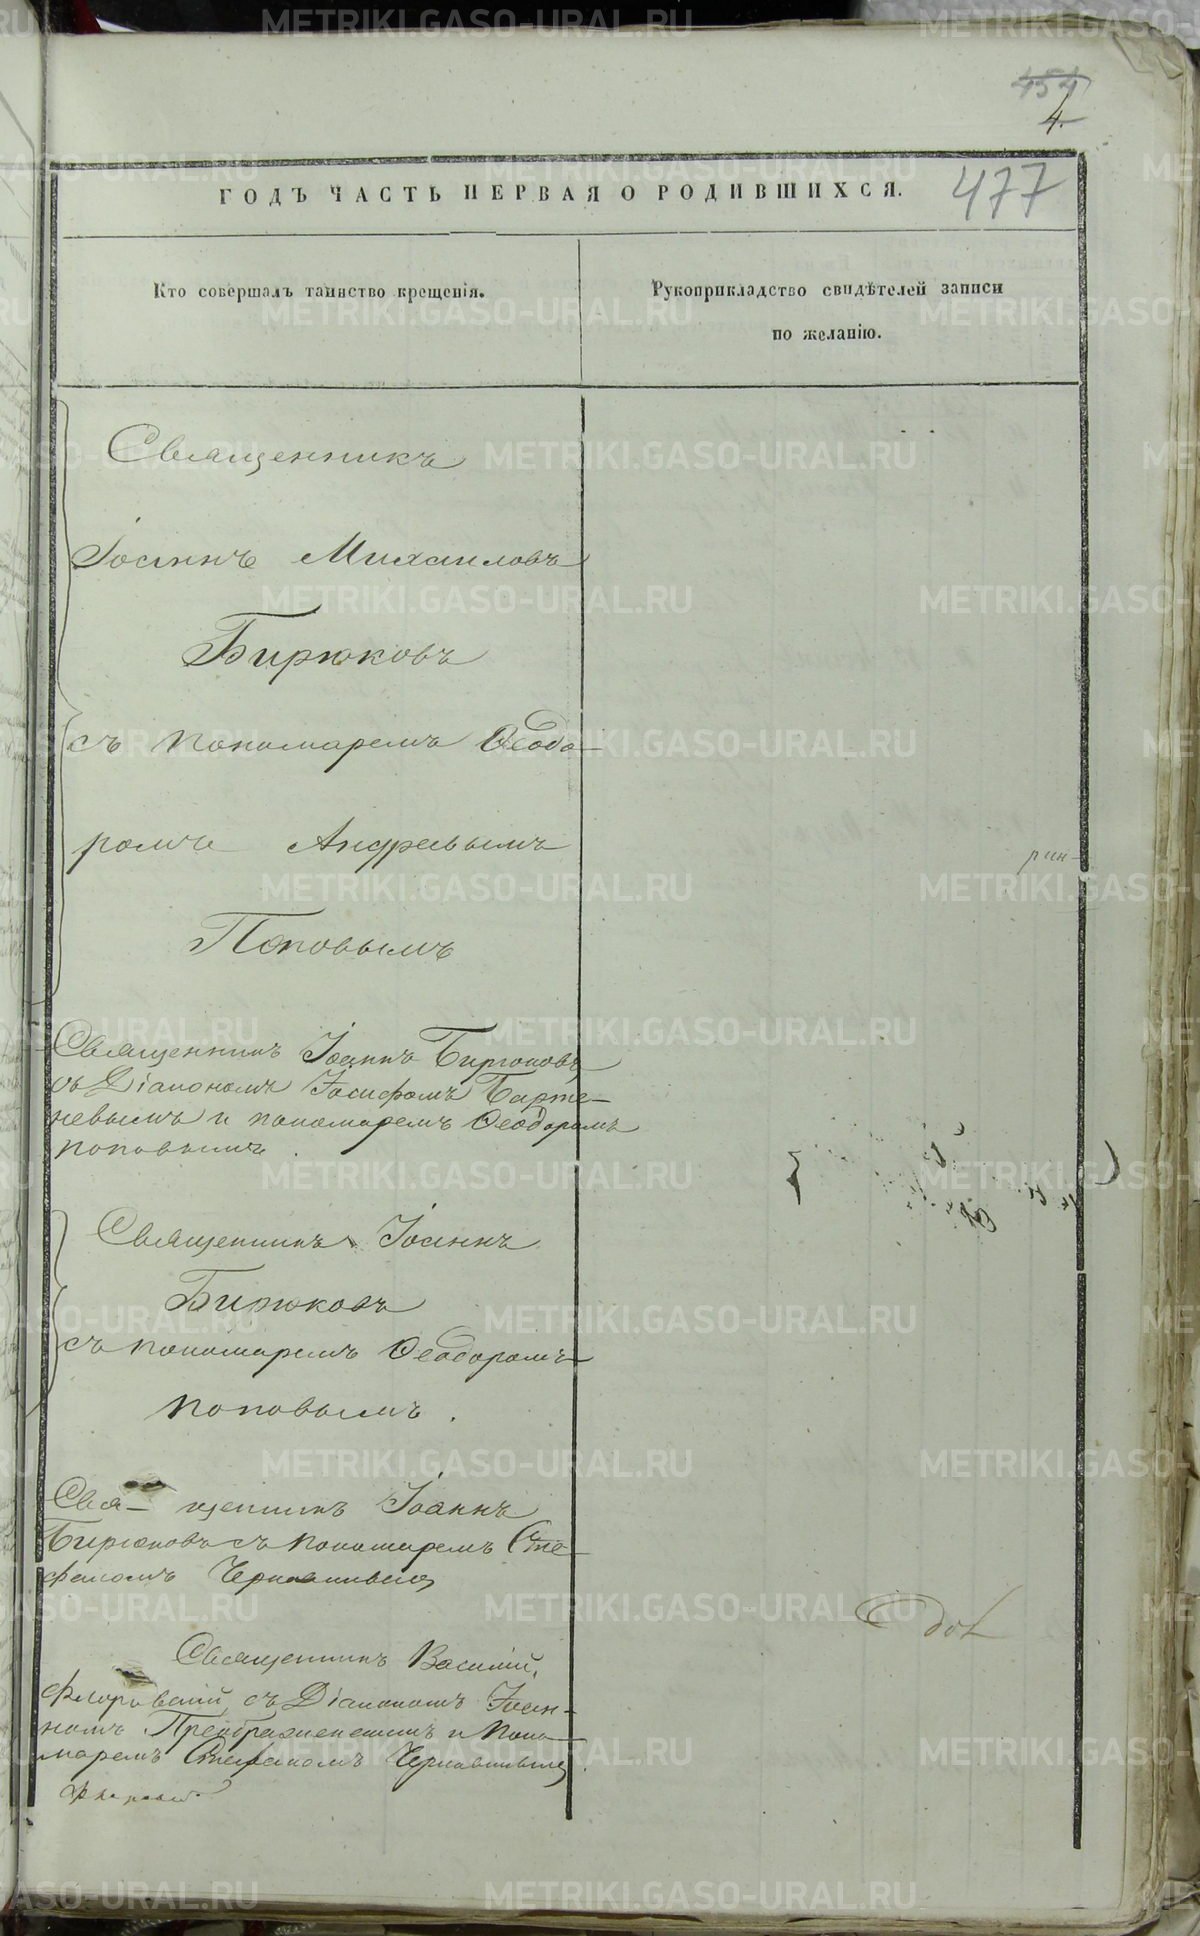 454
4.
ГОДЪ ЧАСТЬ ПЕРВАЯ О РОДИВШИХСЯ.
477
Кто совершалъ таинство крещенія.
Рукоприкладство свидѣтелей записи
по желанію.
Священникъ
Іоаннъ Михаиловъ
Бирюковъ
съ пономаремъ Ѳеодо-
ромъ Андреевымъ
Поповымъ
Священникъ Іоаннъ Бирюковъ
съ Діакономъ Іосифомъ Барте-
невымъ и пономаремъ Ѳеодоромъ
Поповымъ.
Священникъ Іоаннъ
Бирюковъ
съ пономаремъ Ѳеодоромъ
Поповымъ.
Свя- щенникъ Іоаннъ
Бирюковъ съ пономаремъ Сте-
фаномъ
Священникъ Василій
Флоровскій съ Діакономъ Іоан-
номъ Преображенскимъ и Поно-
маремъ Стефаномъ
METRIKI.GASO-URAL.RU